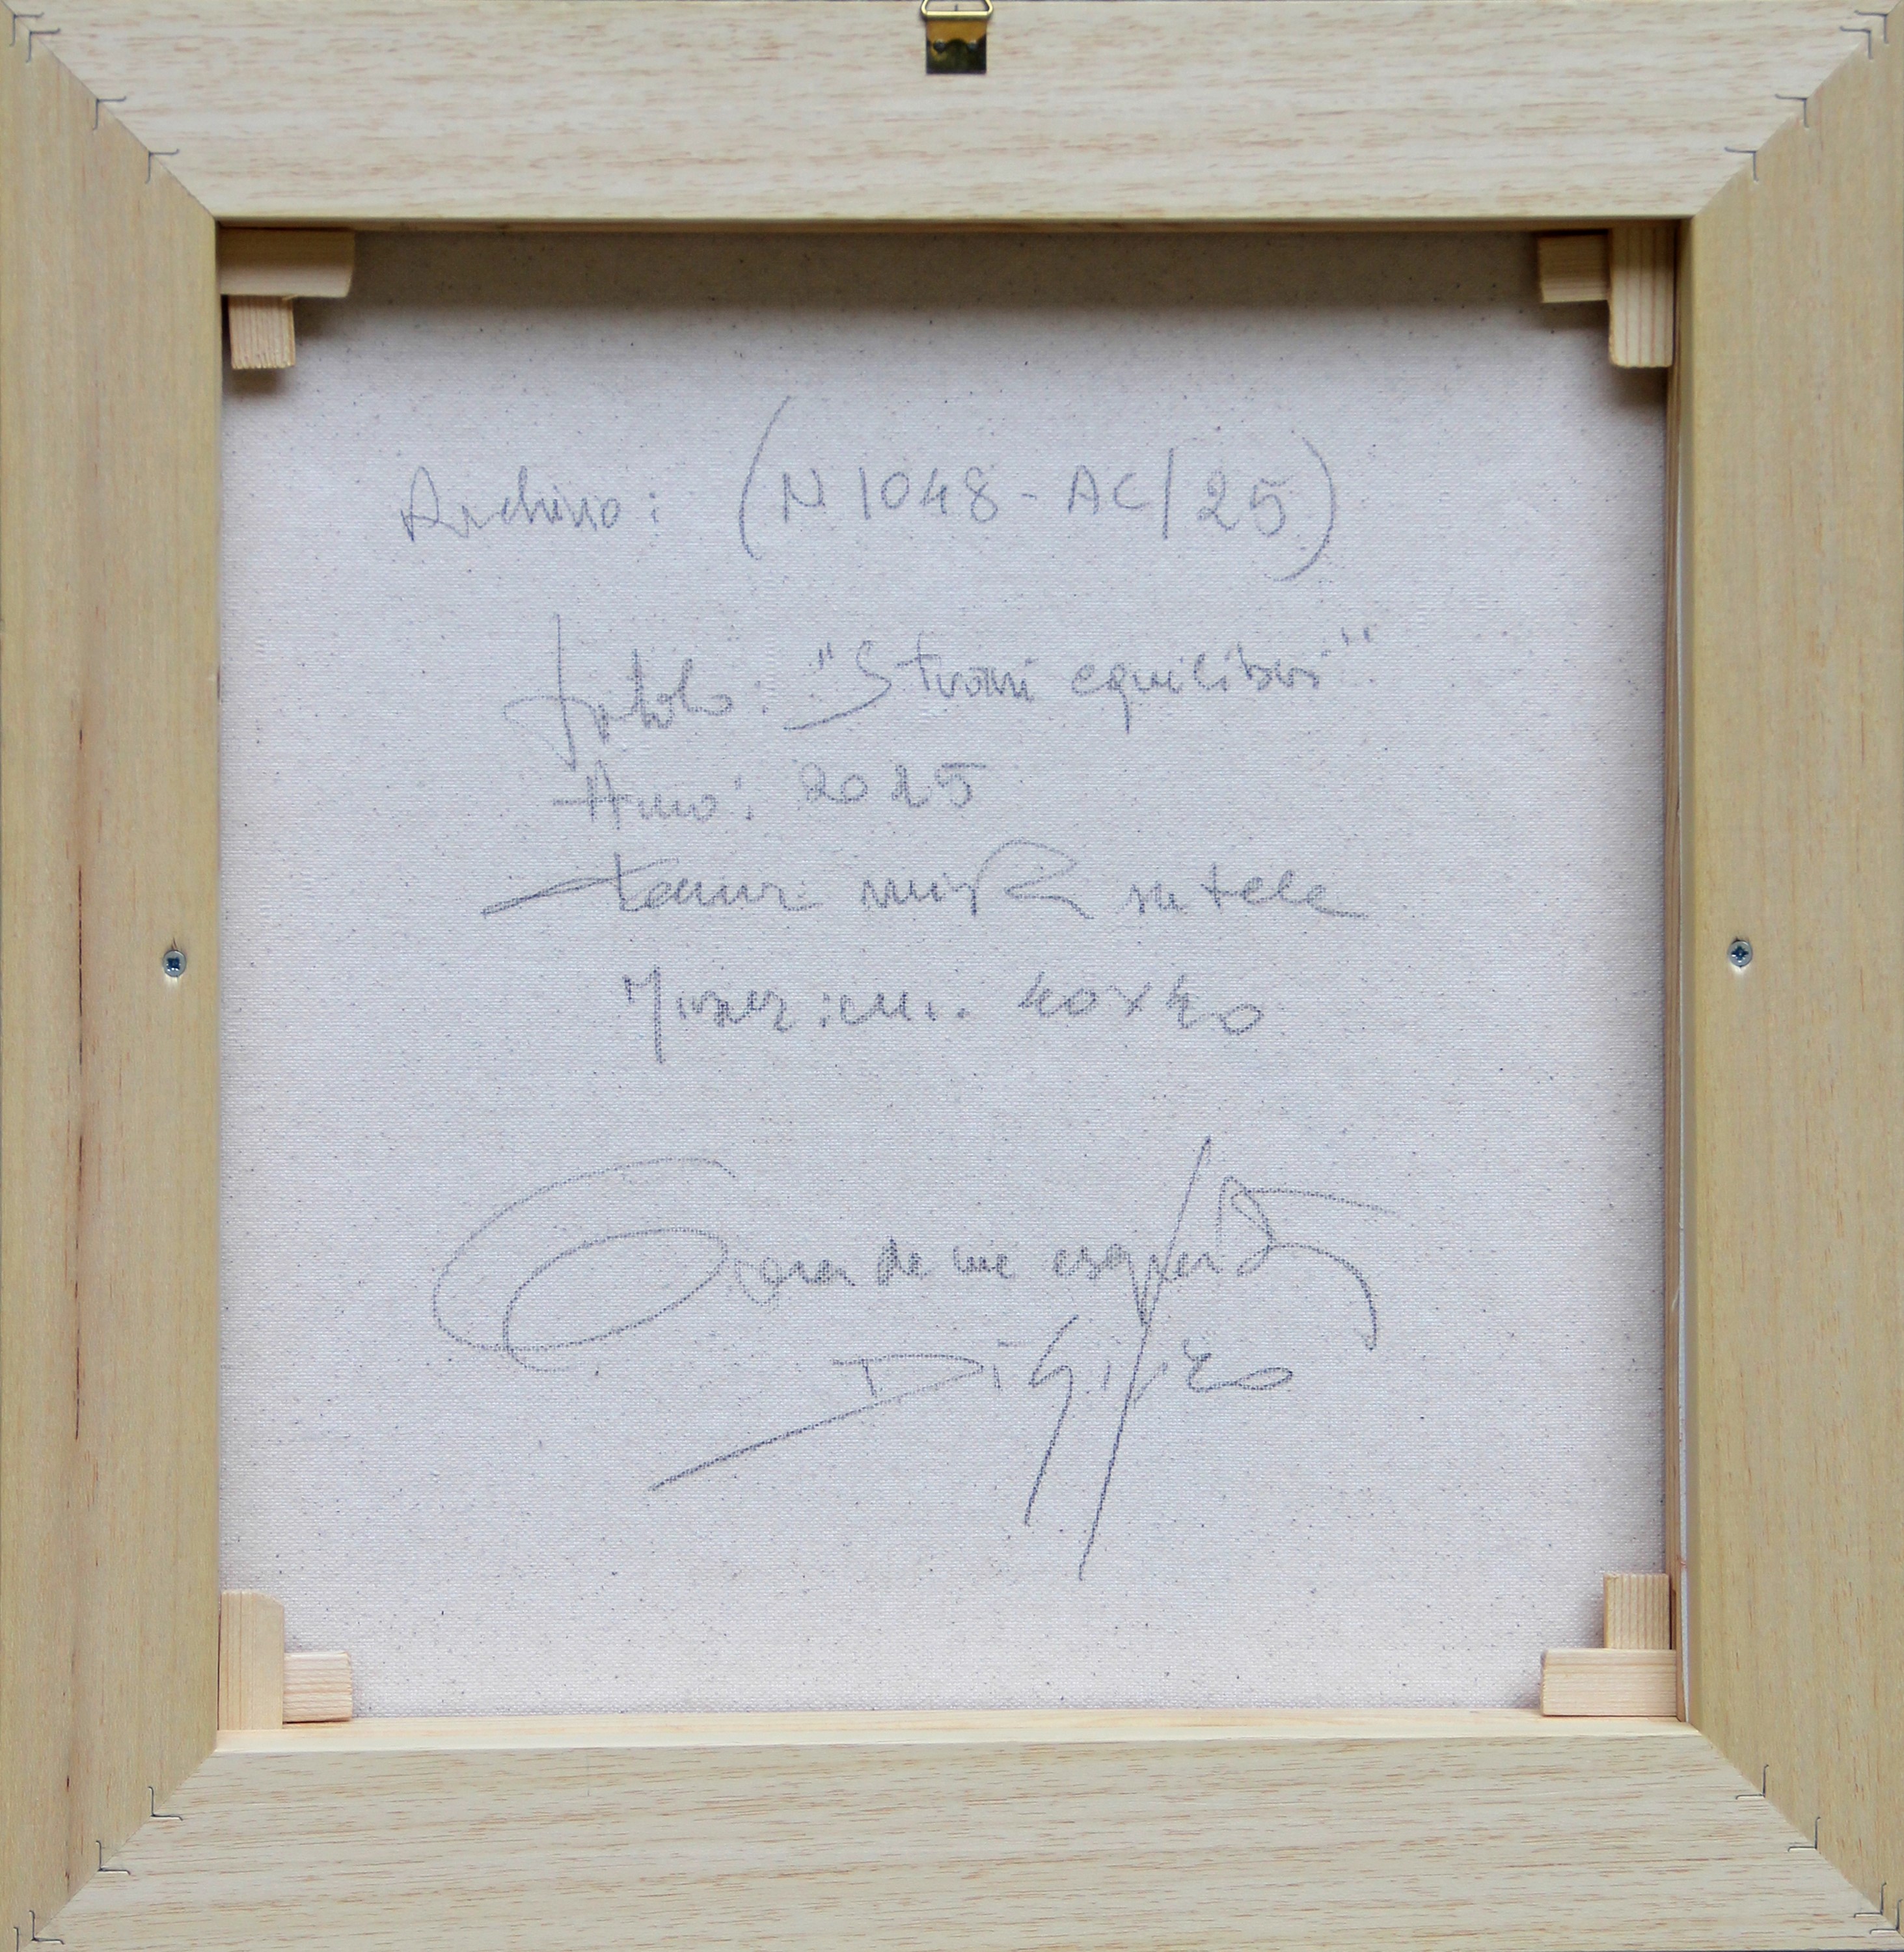 Archivio: (N 1048 - AC/25)
Titolo: "Strani equilibri"
Anno: 2025
tecnica mista su tela
Misure: cm. 40x40
Opera da me eseguita